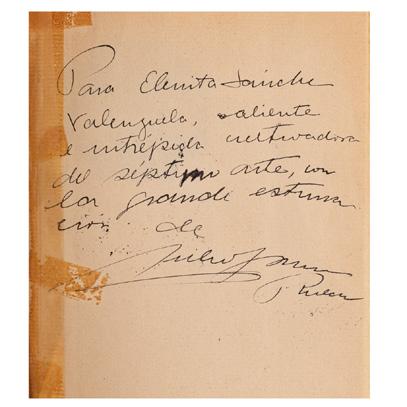 Para Elenita Sánche
Valenzuela, valiente
e intrépida cultivadora
del septimo arte, con
la grande estima
ción de
Julio